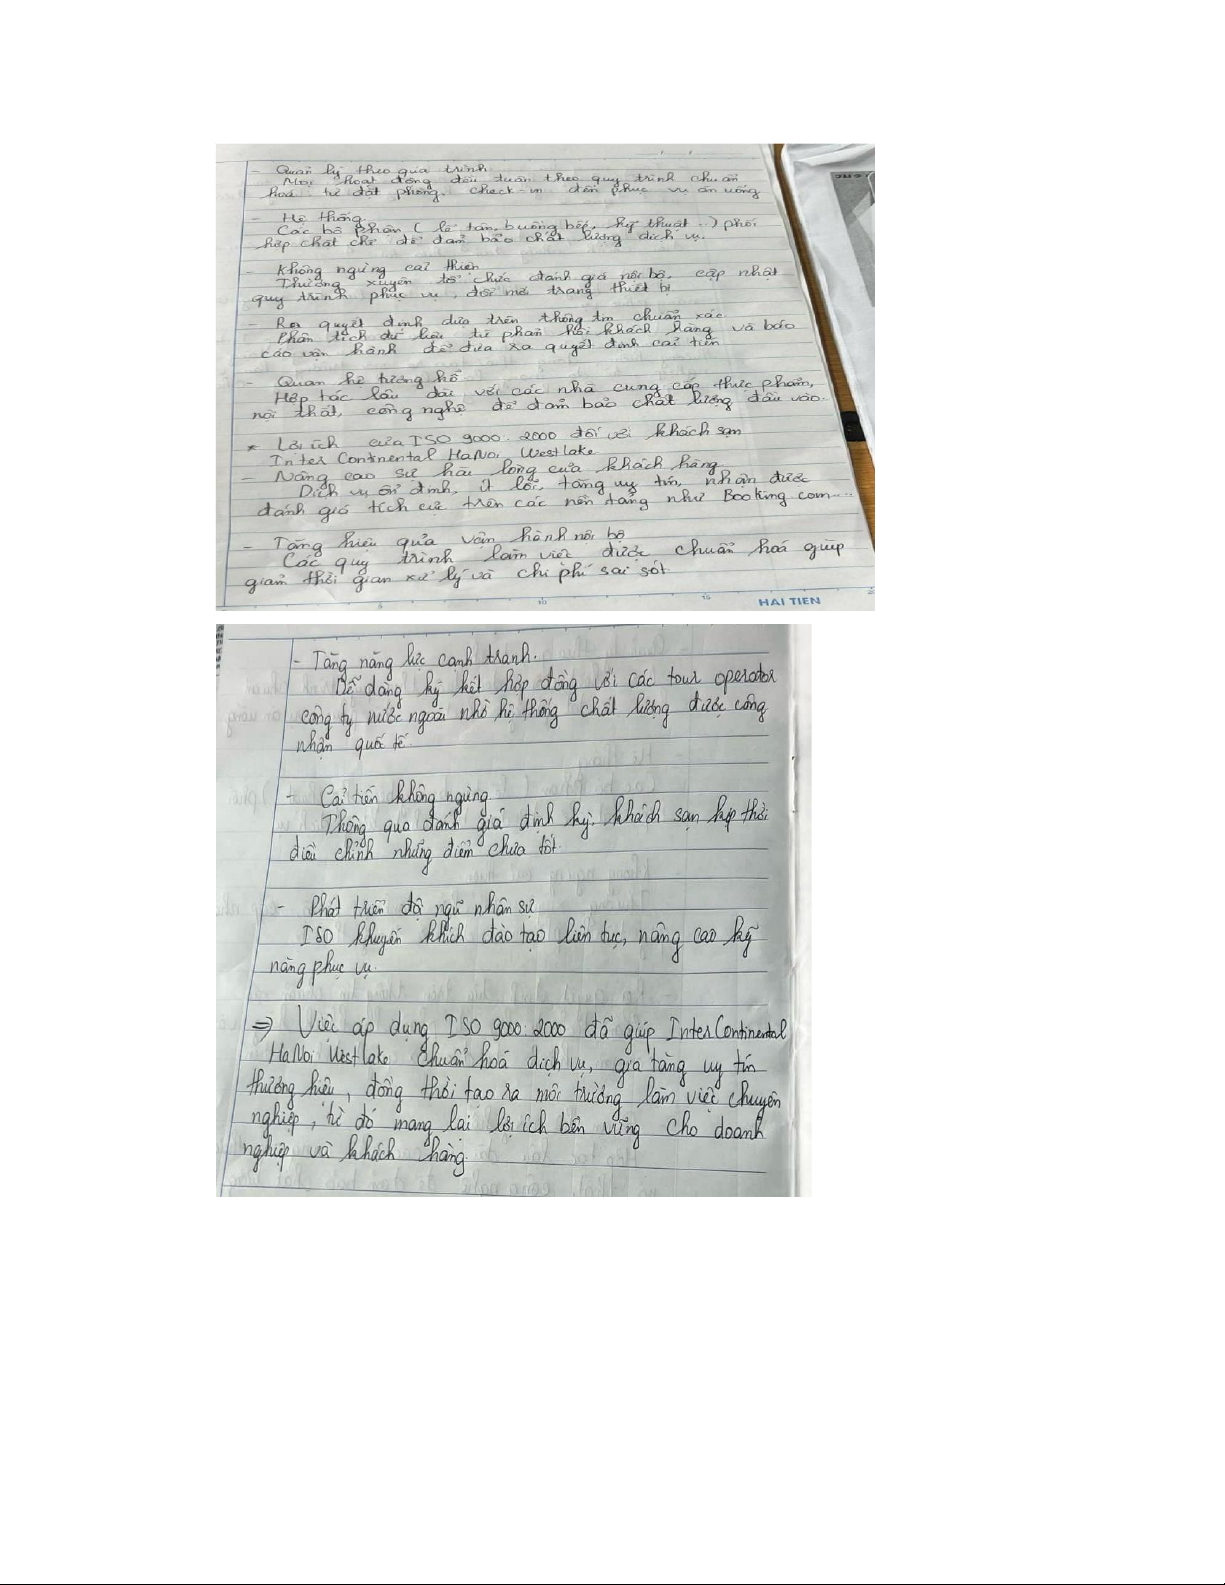 - Quản lý theo quá trình
Mọi hoạt động đều tuân theo quy trình chuẩn
hoá: từ đặt phòng, check-in đến phục vụ ăn uống
- Hệ thống.
Các bộ phận (lễ tân, buồng bếp, kỹ thuật...) phối
hợp chặt chẽ để đảm bảo chất lượng dịch vụ.
- Không ngừng cải thiện
Thường xuyên tổ chức đánh giá nội bộ, cập nhật
quy trình phục vụ, đổi mới trang thiết bị
- Ra quyết định dựa trên thông tin chuẩn xác
Phân tích dữ liệu từ phản hồi khách hàng và báo
cáo vận hành để đưa ra quyết định cải tiến
- Quan hệ tương hỗ
Hợp tác lâu dài với các nhà cung cấp thực phẩm,
nội thất, công nghệ để đảm bảo chất lượng đầu vào.
* Lợi ích của ISO 9000:2000 đối với khách sạn
InterContinental HaNoi Westlake
- Nâng cao sự hài lòng của khách hàng
Dịch vụ ổn định, ít lỗi, tăng uy tín, nhận được
đánh giá tích cực trên các nền tảng như Booking.com....
- Tăng hiệu quả vận hành nội bộ
Các quy trình làm việc được chuẩn hoá giúp
giảm thời gian xử lý và chi phí sai sót
10 15
HẢI TIẾN
- Tăng năng lực cạnh tranh.
Dễ dàng ký kết hợp đồng với các tour operator
công ty nước ngoài nhờ hệ thống chất lượng được công
nhận quốc tế.
- Cải tiến không ngừng
Thông qua đánh giá định kỳ, khách sạn kịp thời
điều chỉnh những điểm chưa tốt.
- Phát triển đội ngũ nhân sự
ISO khuyến khích đào tạo liên tục, nâng cao kỹ
năng phục vụ.
=> Việc áp dụng ISO 9000:2000 đã giúp InterContinental
HaNoi Westlake chuẩn hoá dịch vụ, gia tăng uy tín
thương hiệu, đồng thời tạo ra môi trường làm việc chuyên
nghiệp, từ đó mang lại lợi ích bền vững cho doanh
nghiệp và khách hàng.